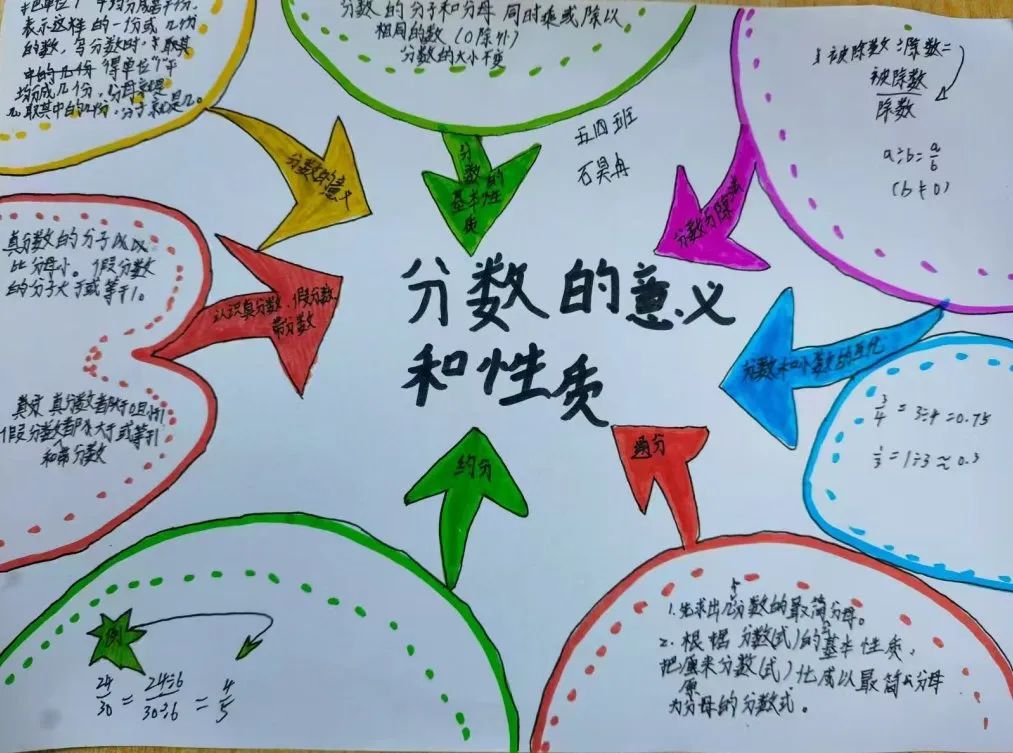 表示这样的一份或几份
的数，写分数时，
中的几份，得单位"1"平
均分成几份，分母就是
几，取其中的几份，分子就是几。
分数的意义
分数的分子和分母同时乘或除以
相同的数（0除外）
分数的大小不变
分数的
基本性
质
五四班
石昊冉
被除数÷除数=
被除数
除数
a÷b=a/b
(b≠0)
分数与除法
真分数的分子
比分母小。假分数
的分子大于或等于1。
认识真分数、假分数、
带分数
真分数都大于0且小于1
假分数都大于或等于1
和带分数
分数的意义
和性质
分数和小数的互化
3/4=3÷4=0.75
1/3=1÷3≈0.3
约分
例
24/30=24÷6/30÷6=4/5
通分
1.先求出几个分数的最简分母。
2.根据分数(式)的基本性质，
把原来分数(式)化成以最简公分母
为分母的分数式。